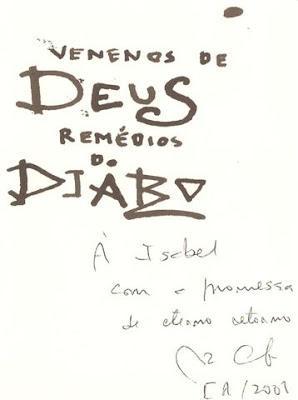 VENENOS DE
DEUS
REMÉDIOS
DO
DIABO
À Isabel
com a promessa
de eterno retorno